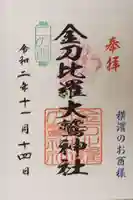 奉拝
横濱のお酉様
金刀比羅大鷲神社
令和二年十一月十四日